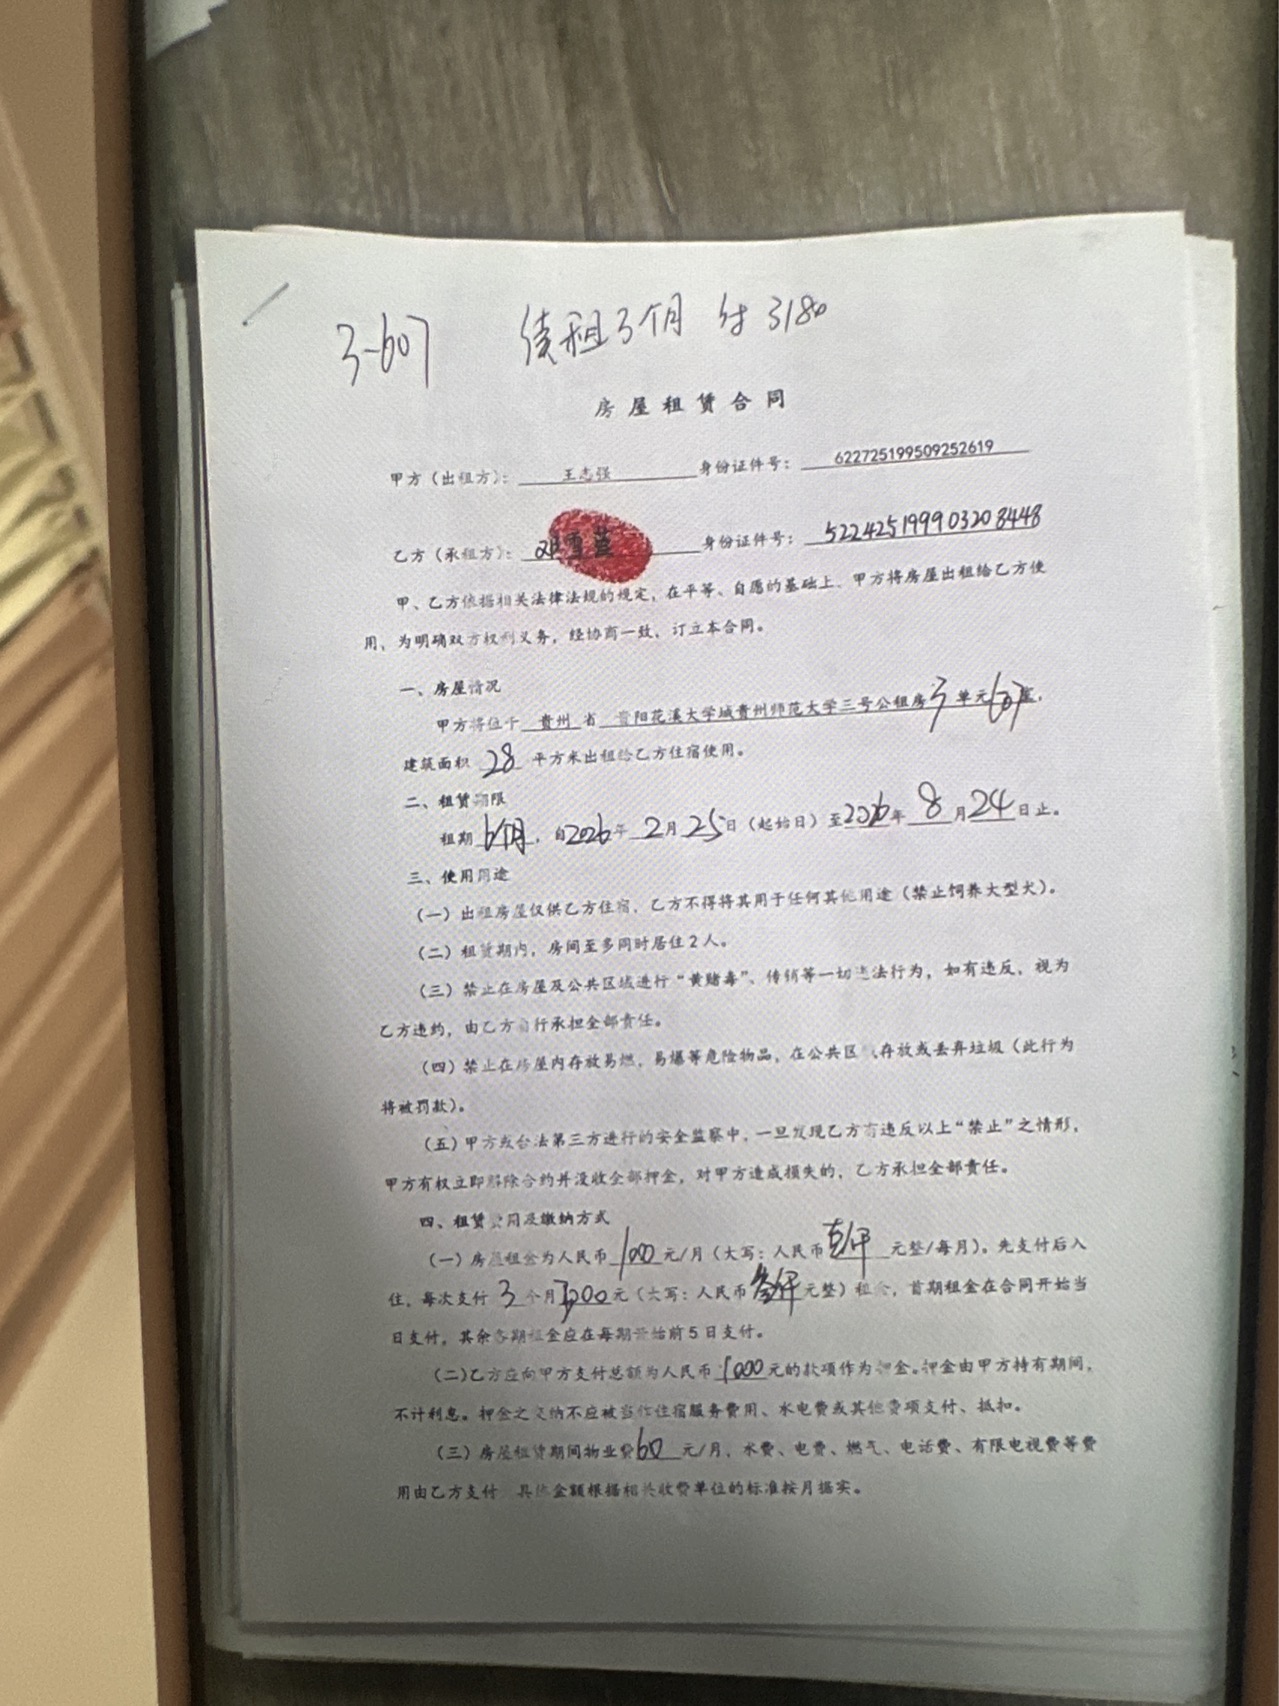 3-607 续租3个月 付3180
房屋租赁合同
甲方（出租方）：王志强 身份证件号：622725199509252619
乙方（承租方）：邓雪 身份证件号：522425199903208448
甲、乙方依据相关法律法规的规定，在平等、自愿的基础上，甲方将房屋出租给乙方使
用，为明确双方权利义务，经协商一致，订立本合同。
一、房屋情况
甲方将位于 贵州 省 贵阳花溪大学城贵州师范大学三号公租房3单元607室，
建筑面积 28 平方米出租给乙方住宿使用。
二、租赁期限
租期 6个月，自2026年 2月25日（起始日）至2026年 8月24日止。
三、使用用途
（一）出租房屋仅供乙方住宿，乙方不得将其用于任何其他用途（禁止饲养大型犬）。
（二）租赁期内，房间至多同时居住2人。
（三）禁止在房屋及公共区域进行“黄赌毒”、传销等一切违法行为，如有违反，视为
乙方违约，由乙方自行承担全部责任。
（四）禁止在房屋内存放易燃，易爆等危险物品，在公共区域存放或丢弃垃圾（此行为
将被罚款）。
（五）甲方或合法第三方进行的安全监察中，一旦发现乙方有违反以上“禁止”之情形，
甲方有权立即解除合约并没收全部押金，对甲方造成损失的，乙方承担全部责任。
四、租赁费用及缴纳方式
（一）房屋租金为人民币 1000 元/月（大写：人民币 壹仟 元整/每月）。先支付后入
住，每次支付 3 个月 3000元（大写：人民币叁仟元整）租金，首期租金在合同开始当
日支付，其余各期租金应在每期开始前5日支付。
（二）乙方应向甲方支付总额为人民币 1000元的款项作为押金。押金由甲方持有期间，
不计利息。押金之交纳不应被当作住宿服务费用、水电费或其他费项支付、抵扣。
（三）房屋租赁期间物业费60 元/月，水费、电费、燃气、电话费、有限电视费等费
用由乙方支付，具体金额根据相关收费单位的标准按月据实。